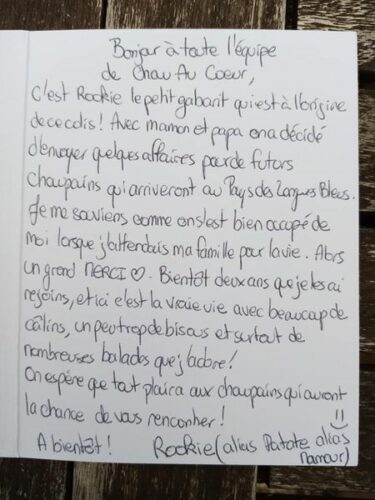 Bonjour à toute l'équipe
de Chau Au Coeur,
C'est Rookie le petit gabarit qui est à l'origine
de ce colis ! Avec maman et papa on a décidé
d'envoyer quelques affaires pour de futurs
chaupains qui arriveront au Pays des Langues Bleues.
Je me souviens comme on s'est bien occupé de
moi lorsque j'attendais ma famille pour la vie. Alors
un grand MERCI ♡. Bientôt deux ans que je les ai
rejoins, et ici c'est la vraie vie avec beaucoup de
câlins, un peu trop de bisous et surtout de
nombreuses balades que j'adore !
On espère que tout plaira aux chaupains qui auront
la chance de vous rencontrer !
A bientôt ! Rookie (alias Patate alias
Namour)